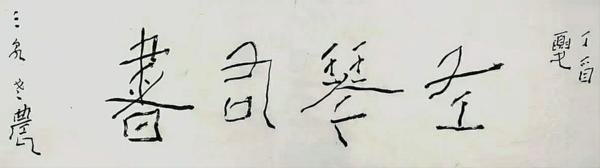 丁酉
左琴右書
三泉老農